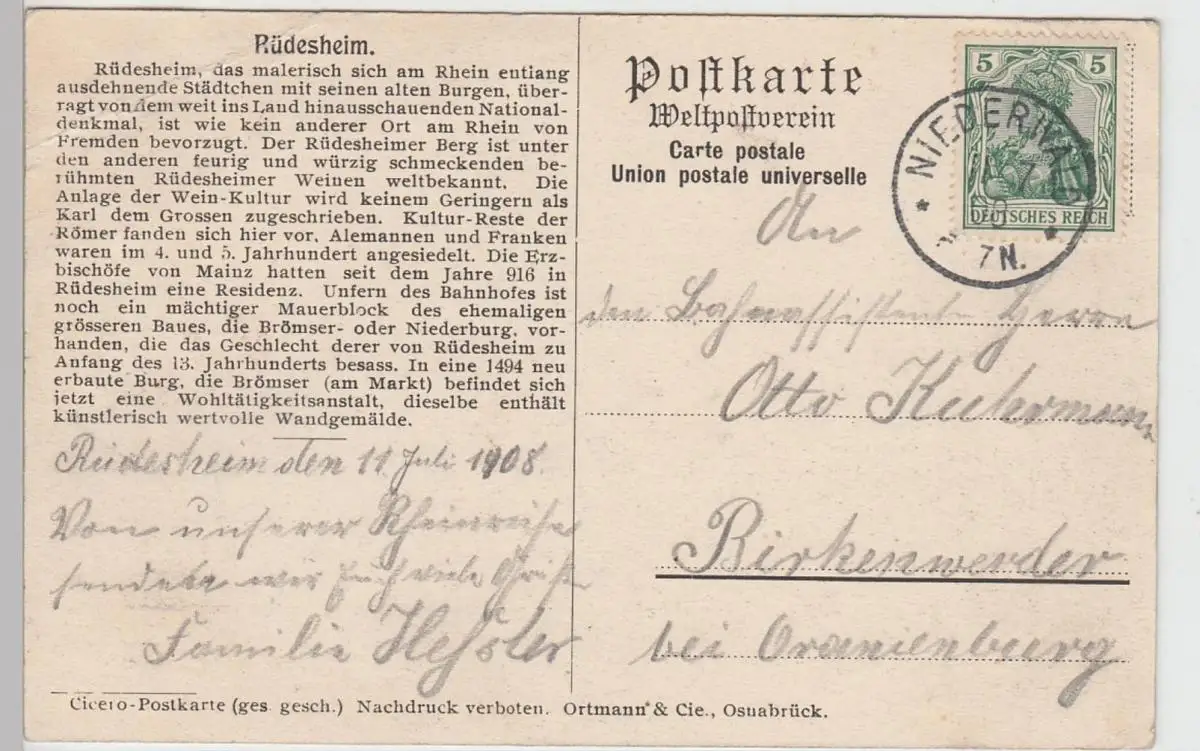 Rüdesheim.
Rüdesheim, das malerisch sich am Rhein entlang
ausdehnende Städtchen mit seinen alten Burgen, über-
ragt von dem weit ins Land hinausschauenden National-
denkmal, ist wie kein anderer Ort am Rhein von
Fremden bevorzugt. Der Rüdesheimer Berg ist unter
den anderen feurig und würzig schmeckenden be-
rühmten Rüdesheimer Weinen weltbekannt. Die
Anlage der Wein-Kultur wird keinem Geringern als
Karl dem Grossen zugeschrieben. Kultur-Reste der
Römer fanden sich hier vor. Alemannen und Franken
waren im 4. und 5. Jahrhundert angesiedelt. Die Erz-
bischöfe von Mainz hatten seit dem Jahre 916 in
Rüdesheim eine Residenz. Unfern des Bahnhofes ist
noch ein mächtiger Mauerblock des ehemaligen
grösseren Baues, die Brömser- oder Niederburg, vor-
handen, die das Geschlecht derer von Rüdesheim zu
Anfang des 13. Jahrhunderts besass. In eine 1494 neu
erbaute Burg, die Brömser (am Markt) befindet sich
jetzt eine Wohltätigkeitsanstalt, dieselbe enthält
künstlerisch wertvolle Wandgemälde.
Rüdesheim den 11 Juli 1908.
Von unserer Rheinreise
senden wir Euch viele Grüße
Familie Heßler
Cicero-Postkarte (ges. gesch.) Nachdruck verboten. Ortmann & Cie., Osnabrück.
Postkarte
Weltpostverein
Carte postale
Union postale universelle
5 5
DEUTSCHES REICH
NIEDERWALD
7 N.
An
den Bahnassistenten Herrn
Otto
Birkenwerder
bei Oranienburg